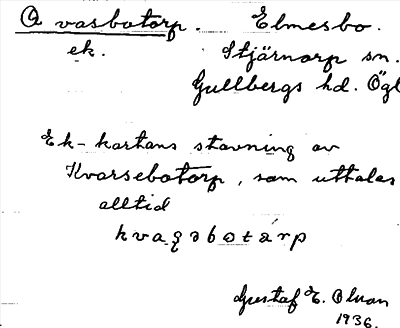 Qvasbotorp. Elmesbo.
ek. Stjärnorp sn.
Gullbergs hd. Ögl
Ek-kartans stavning av
Kvarsebotorp, som uttalas
alltid
Gustaf E.
1936.